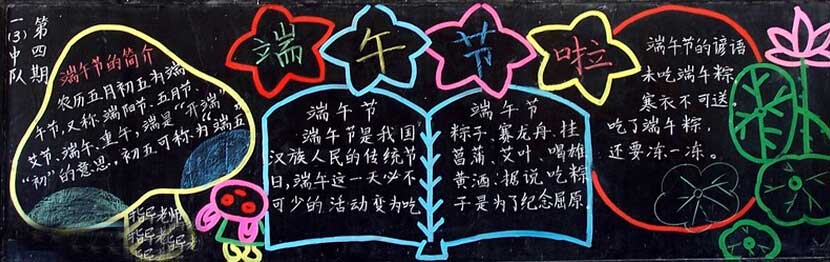 第四期
一(3)中队
端午节啦
端午节的简介
农历五月初五为端
午节，又称端阳节、五月节、
艾节、端午、重午，端是“开端”
“初”的意思，初五可称为“端五”
指导老师
端午节
端午节是我国
汉族人民的传统节
日，端午这一天必不
可少的活动变为吃
端午节
粽子、赛龙舟、挂
菖蒲、艾叶、喝雄
黄酒.据说吃粽
子是为了纪念屈原
端午节的谚语
未吃端午粽，
寒衣不可送。
吃了端午粽，
还要冻一冻。